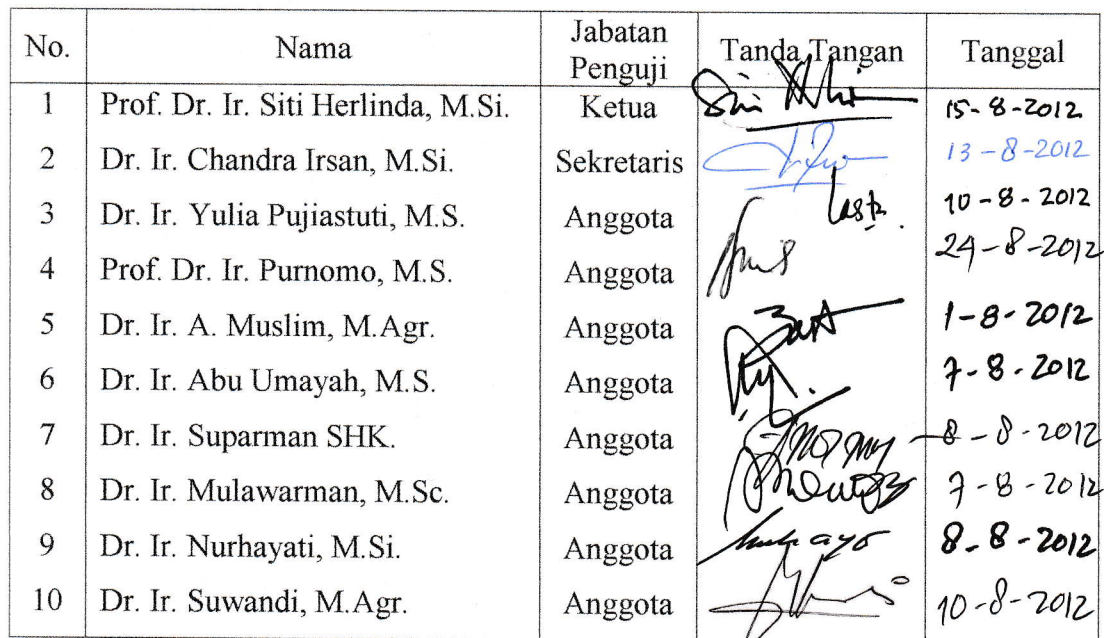 No. Nama Jabatan Penguji Tanda Tangan Tanggal
1 Prof. Dr. Ir. Siti Herlinda, M.Si. Ketua 15-8-2012
2 Dr. Ir. Chandra Irsan, M.Si. Sekretaris 13-8-2012
3 Dr. Ir. Yulia Pujiastuti, M.S. Anggota 10-8-2012
4 Prof. Dr. Ir. Purnomo, M.S. Anggota 24-8-2012
5 Dr. Ir. A. Muslim, M.Agr. Anggota 1-8-2012
6 Dr. Ir. Abu Umayah, M.S. Anggota 7-8-2012
7 Dr. Ir. Suparman SHK. Anggota 8-8-2012
8 Dr. Ir. Mulawarman, M.Sc. Anggota 7-8-2012
9 Dr. Ir. Nurhayati, M.Si. Anggota 8-8-2012
10 Dr. Ir. Suwandi, M.Agr. Anggota 10-8-2012